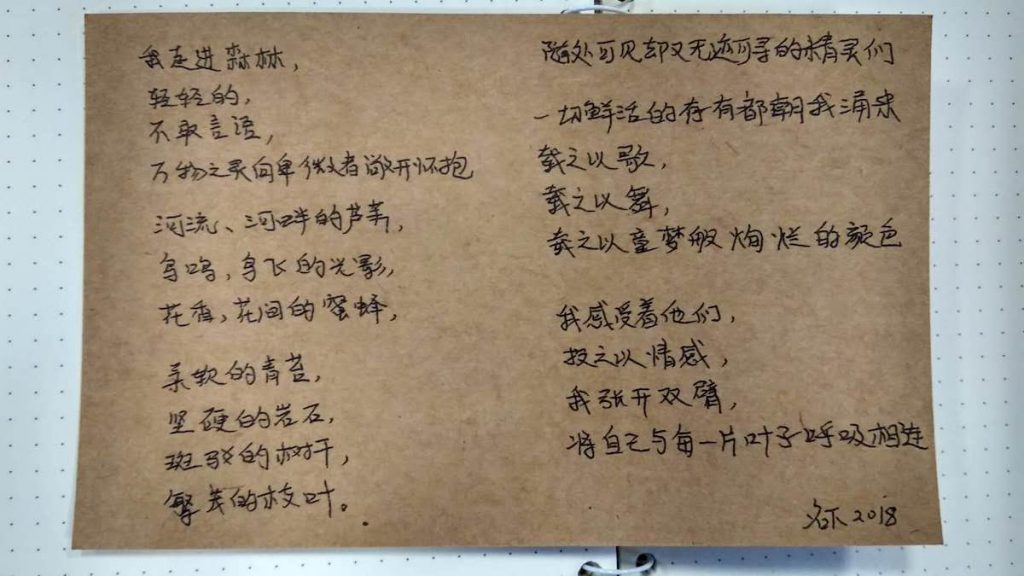 我走进森林，
轻轻的，
不敢言语，
万物之灵向卑微者敞开怀抱
河流、河畔的芦苇，
鸟鸣，鸟飞的光影，
花香，花间的蜜蜂，
柔软的青苔，
坚硬的岩石，
斑驳的树干，
繁茂的枝叶。
随处可见却又无迹可寻的精灵们
一切鲜活的存有都朝我涌来
载之以歌，
载之以舞，
载之以童梦般绚烂的颜色
我感受着他们，
投之以情感，
我张开双臂，
将自己与每一片叶子呼吸相连
2018